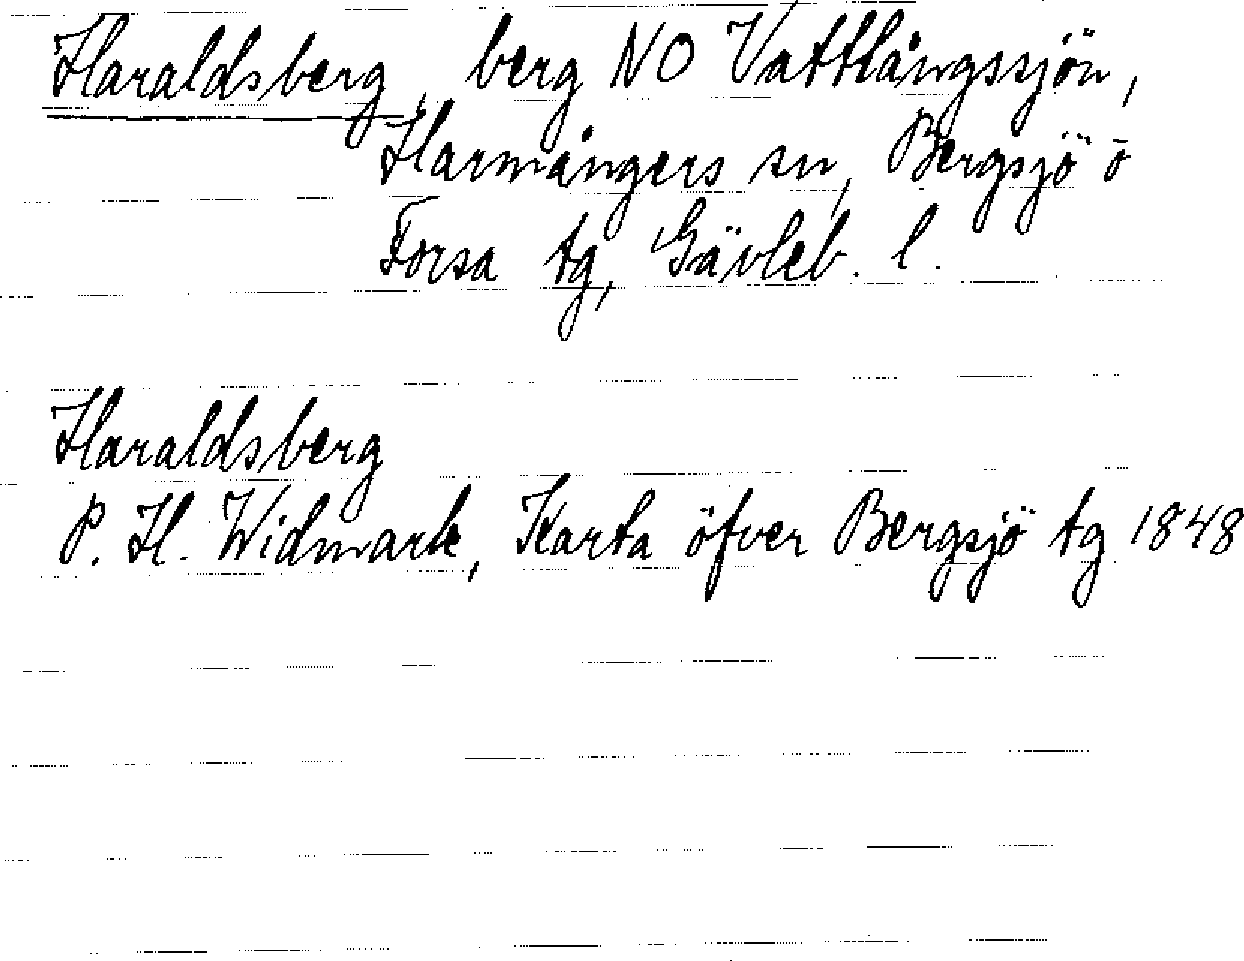 Haraldsberg, berg NO Vattlångssjön,
Harmångers sn, Bergsjö o
Forsa tg, Gävleb. l.
Haraldsberg
P. H. Widmark, Karta öfver Bergsjö tg 1848